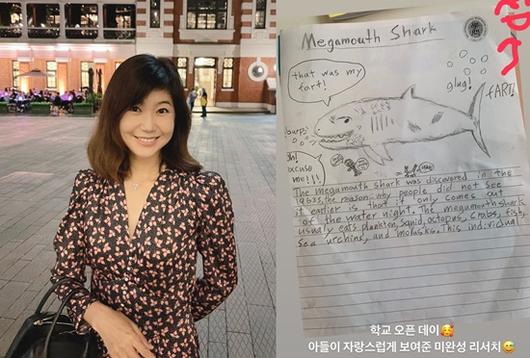 Megamouth Shark
that was my
fart!
glug!
FART!
burp!
excuse
me!!!
The megamouth shark was discovered in the
reason why people did not see
it earlier is that it only comes out
of the water night. The megamouth shark
usually eats plankton, squid, octopus, crabs, fish,
sea urchins, and molusks. This individual
학교 오픈 데이🥰
아들이 자랑스럽게 보여준 미완성 리서치😅